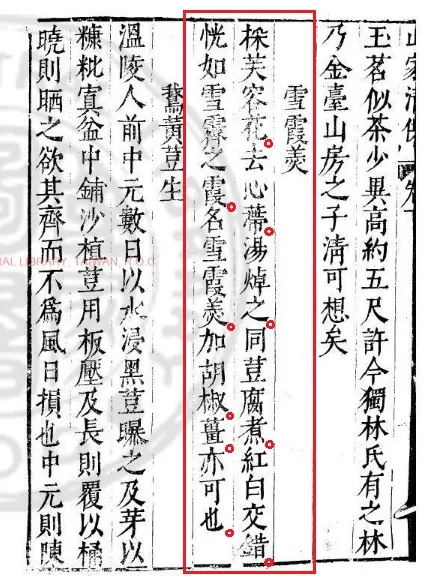 玉茗似茶少異高約五尺許今獨林氏有之林
乃金臺山房之子清可想矣
雪霞羮
採芙容花去心蔕湯焯之同荳腐煮紅白交錯
恍如雪霽之霞名雪霞羮加胡椒薑亦可也
鵞黃荳生
溫陵人前中元數日以水浸黑荳曝之及芽以
糠粃寘盆中鋪沙植荳用板壓及長則覆以桶
曉則晒之欲其齊而不為風日損也中元則陳
LIBRARY, TAIWAN, R.O.C.